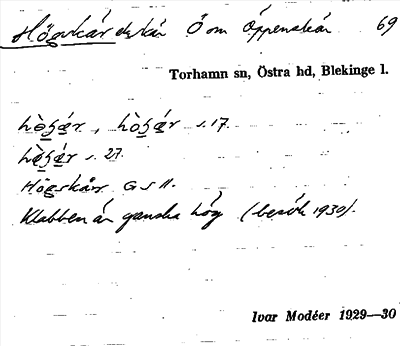 Högskär skär Ö om Öppenskär 69
Torhamn sn, Östra hd, Blekinge l.
hö̀ʒǽr, hö̀ʒǽr s. 17.
hö̀ʒǽr s. 27.
Högskärr GSH.
Klabben är ganska hög (besök 1930).
Ivar Modéer 1929—30